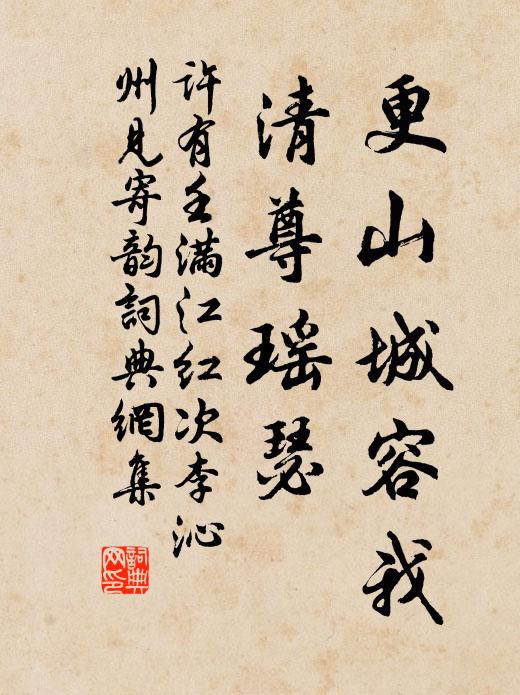 更山城容我
清尊瑶瑟
许有壬满江红次李沁
州见寄韵词典網集
詞典网印